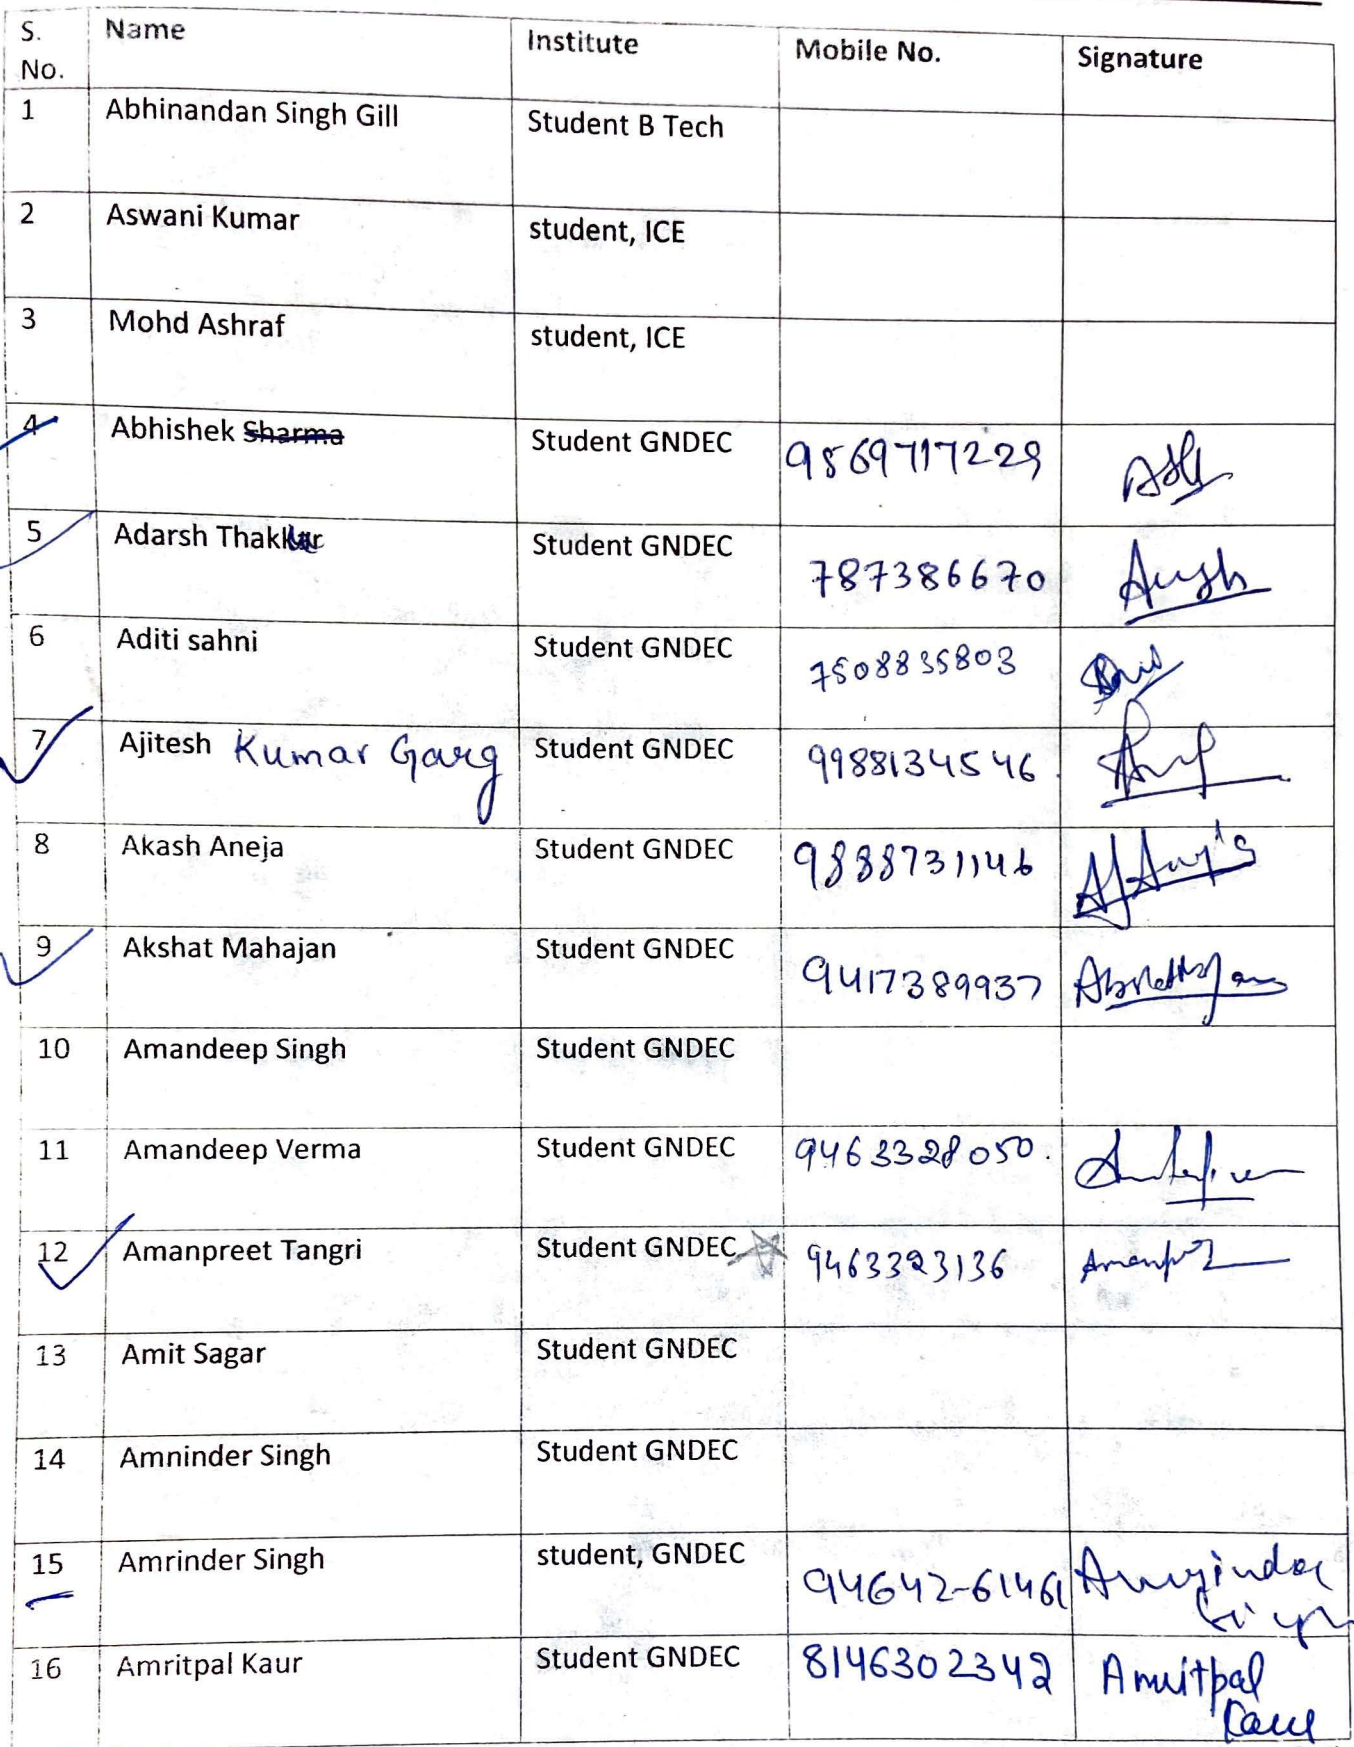 S. No. Name Institute Mobile No. Signature
1 Abhinandan Singh Gill Student B Tech
2 Aswani Kumar student, ICE
3 Mohd Ashraf student, ICE
4 Abhishek Sharma Student GNDEC 9569717229
5 Adarsh Thakkar Student GNDEC 787386670
6 Aditi sahni Student GNDEC 7508835803
7 Ajitesh Kumar Garg Student GNDEC 9988134546
8 Akash Aneja Student GNDEC 9888731146
9 Akshat Mahajan Student GNDEC 9417389937
10 Amandeep Singh Student GNDEC
11 Amandeep Verma Student GNDEC 9463328050.
12 Amanpreet Tangri Student GNDEC 9463323136
13 Amit Sagar Student GNDEC
14 Amninder Singh Student GNDEC
15 Amrinder Singh student, GNDEC 94642-61461 Amrinder Singh
16 Amritpal Kaur Student GNDEC 8146302342 Amritpal Kaur